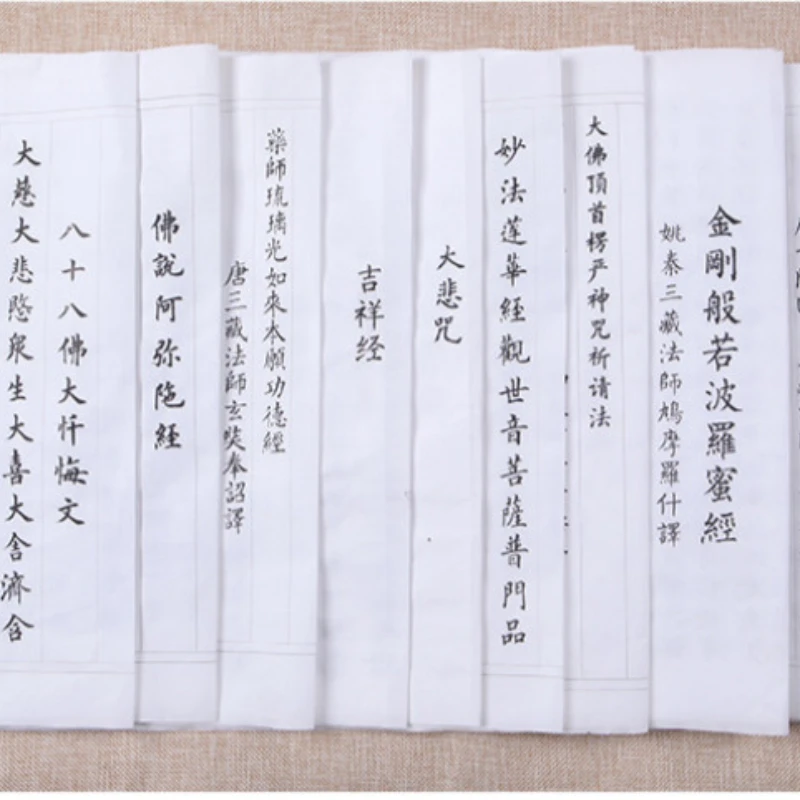 金剛般若波羅蜜經
姚秦三藏法師鳩摩羅什譯
大佛頂首楞严神咒祈请法
妙法莲華經觀世音菩薩普門品
大悲咒
吉祥经
藥師琉璃光如來本願功德經
唐三藏法師玄奘奉詔譯
佛說阿弥陁經
八十八佛大忏悔文
大慈大悲愍眾生大喜大舍濟含